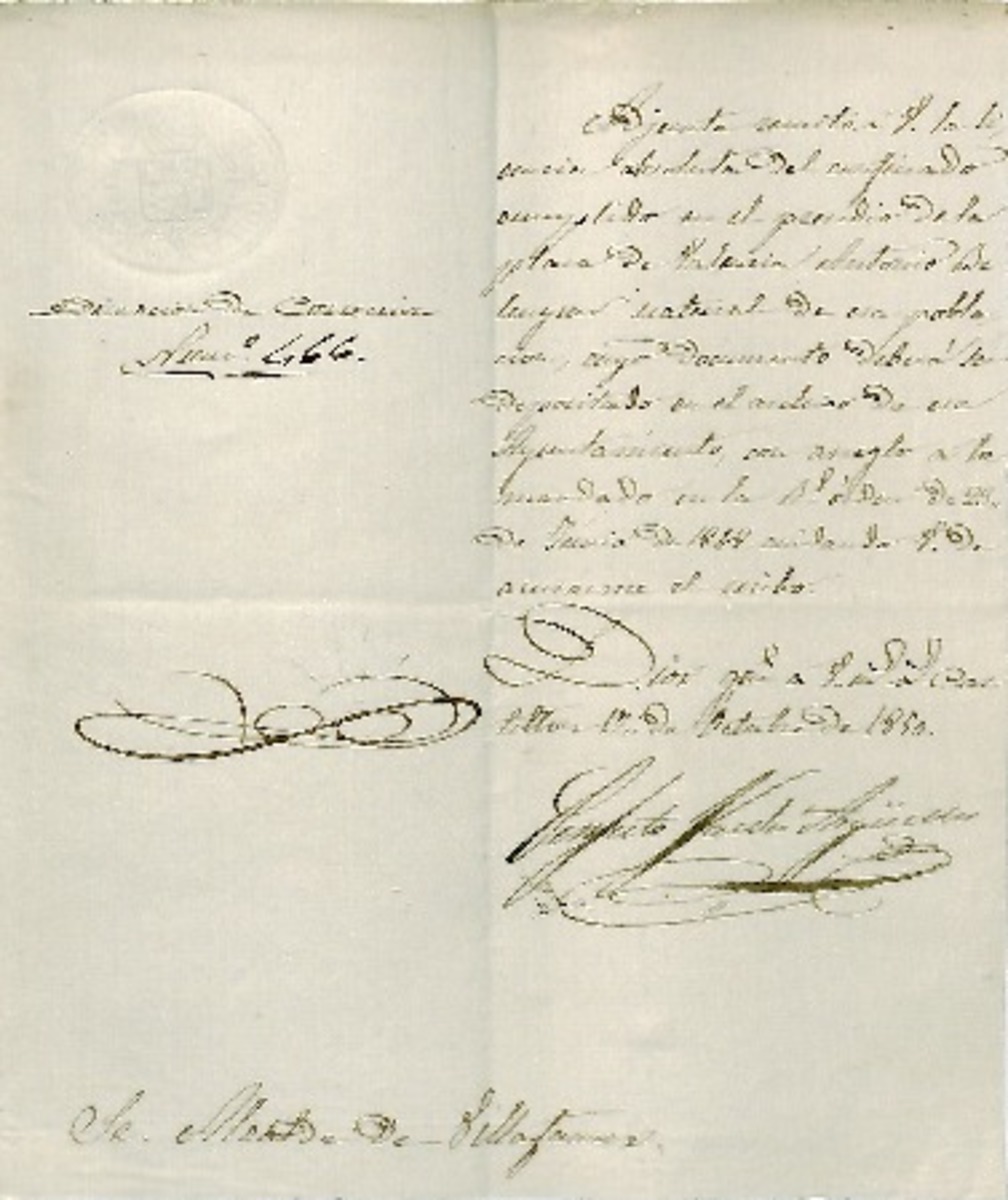 Direccion de Correccion
Num.º 466.
Adjunta remito á V. la li
cencia absoluta del confinado
cumplido en el presidio de la
plaza de Valencia Antonio
natural de esa pobla
cion, cuyo documento deberá
depositado en el archivo de ese
Ayuntamiento, con arreglo a lo
mandado en la Rl. órden de
de Junio de cuidando V. de
acusarme el recibo.
Dios gue. a V. ms. as. Cas
tellon 1º. de Octubre de 1850.
Sr. Alcalde de Villafames.